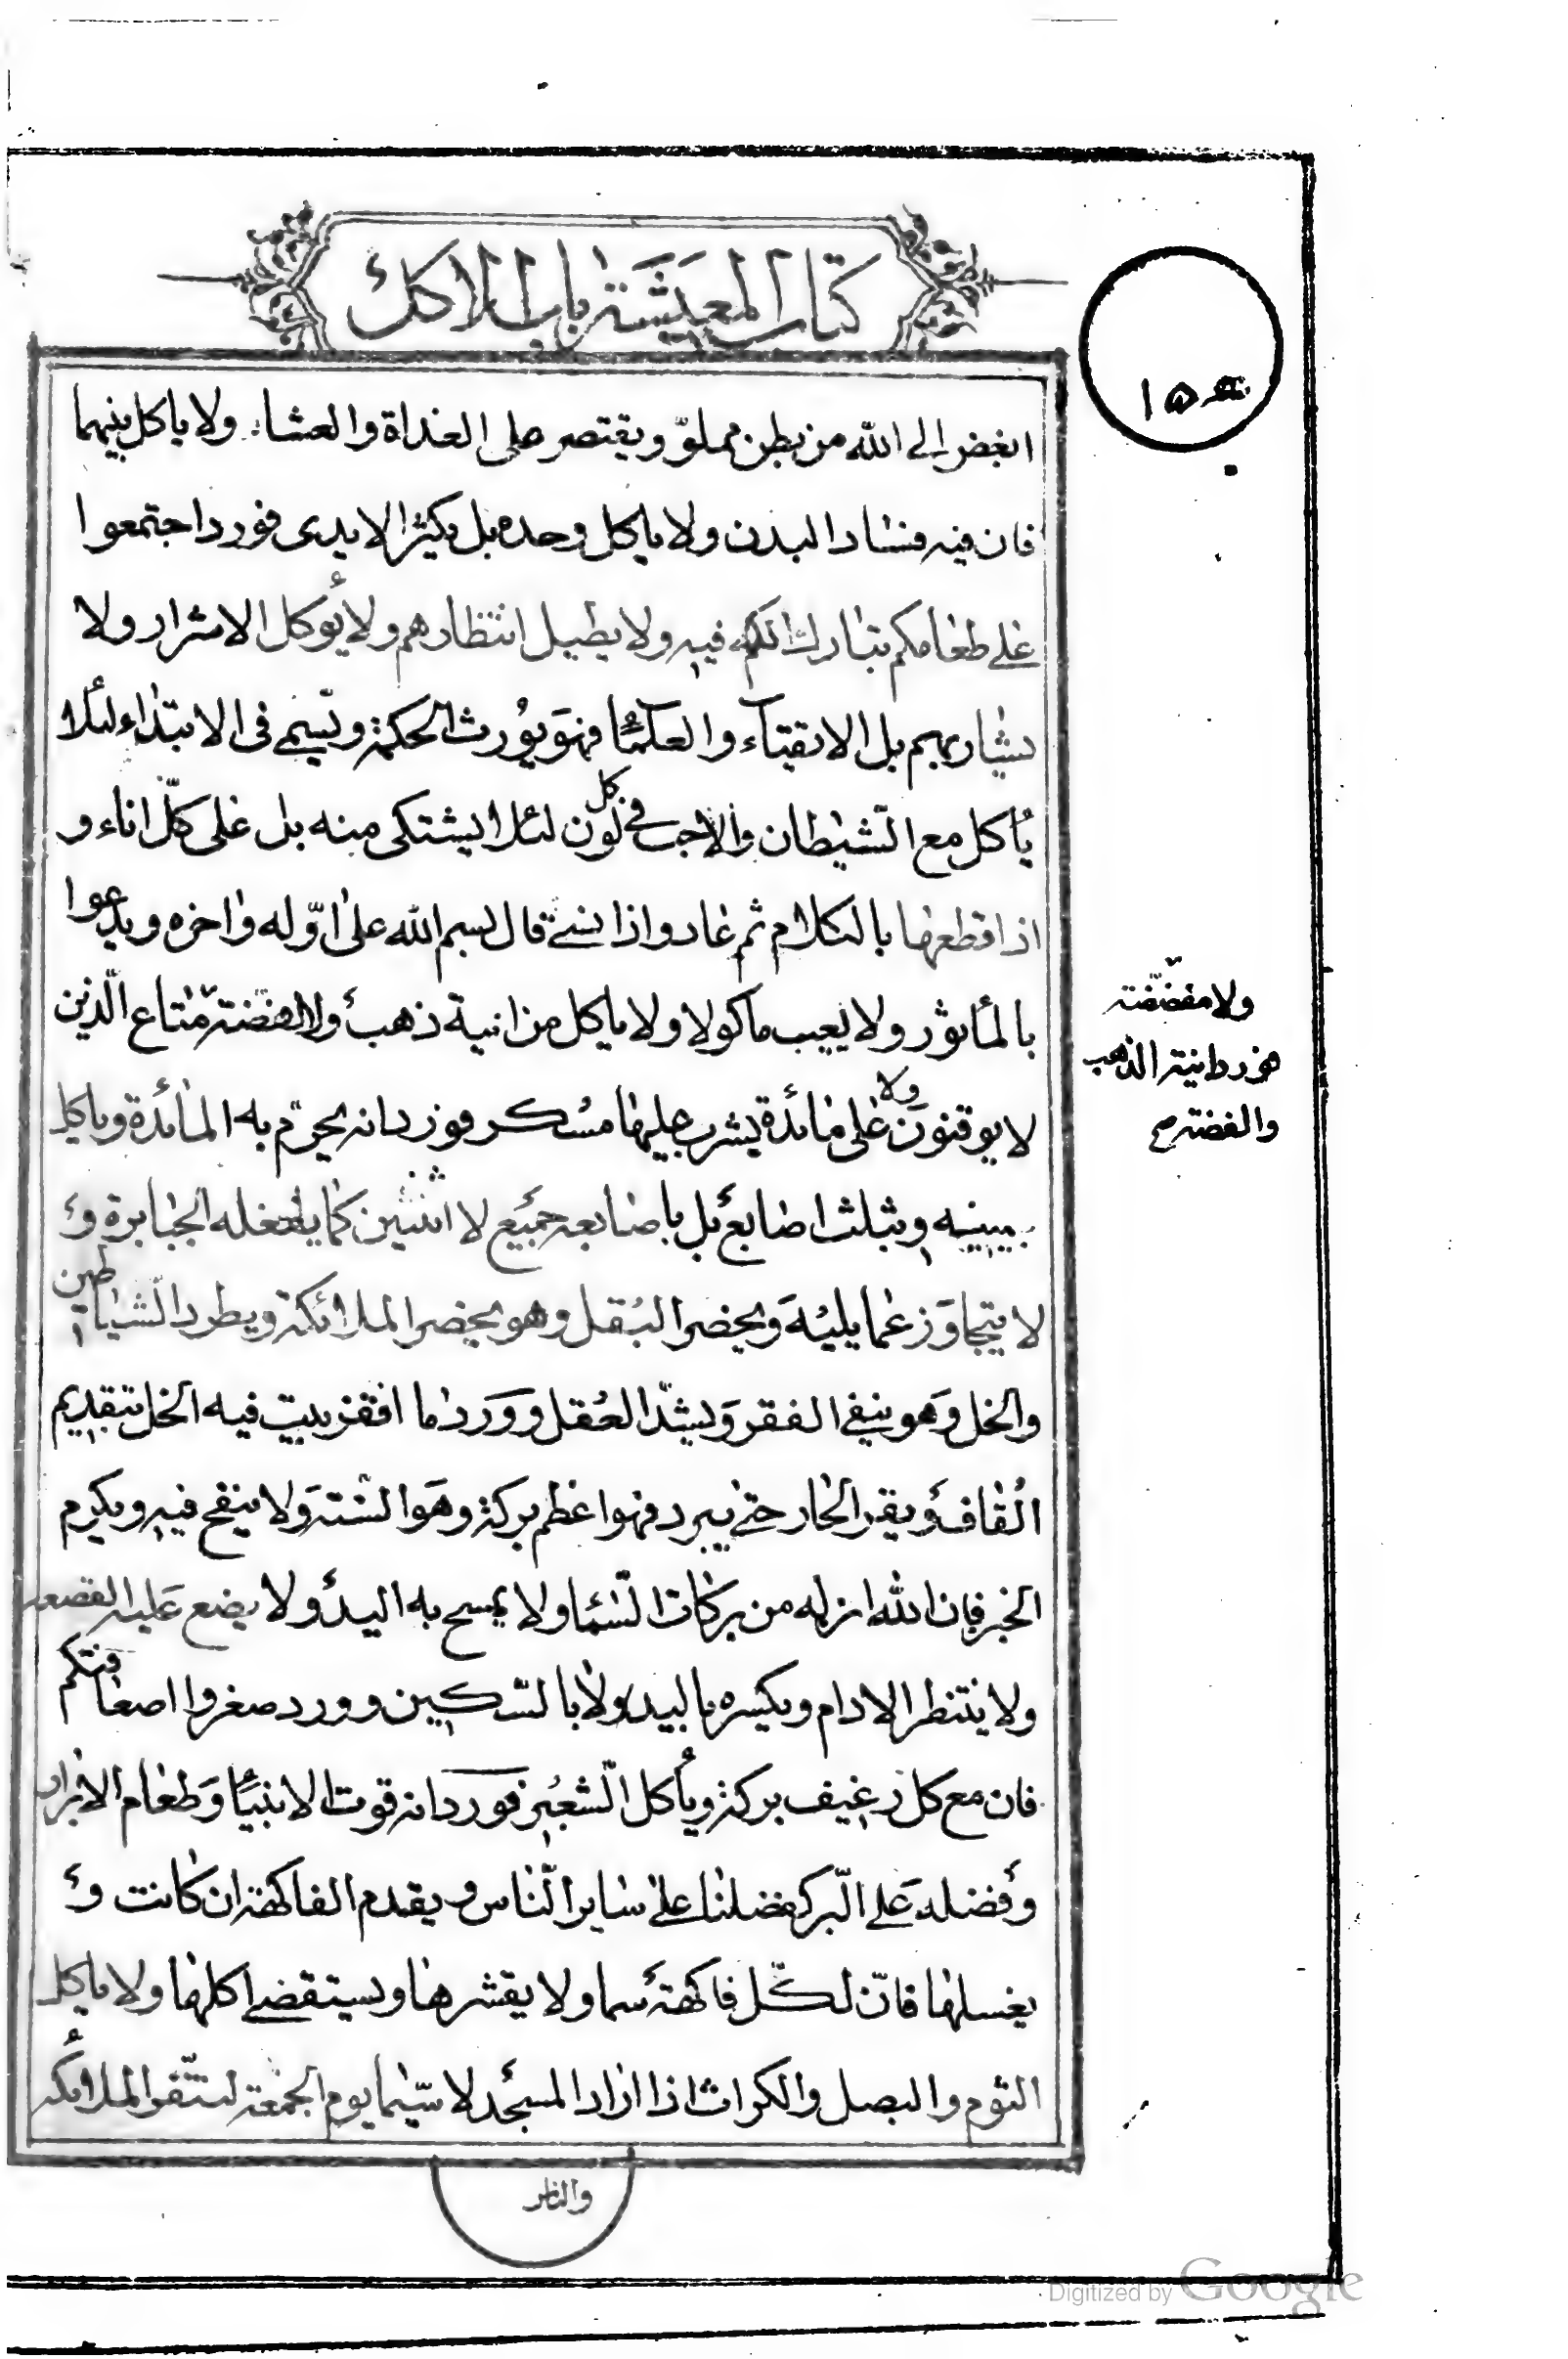 كتاب المعيشة باب الاكل
ابغض الى الله من بطن مملوّ ويقتصر على الغداة والعشاء ولا ياكل بينهما
فان فيه فساد البدن ولا ياكل وحده بل يكثر الايدى فورد اجتمعوا
على طعامكم تبارك لكم فيه ولا يطيل انتظارهم ولا يؤكل الاشرار ولا
يشاربهم بل الاتقياء والعلماء فهو يورث الحكمة ويسمى فى الابتداء لئلا
يأكل مع الشيطان والاحب فى كل لون لئلا يشتكى منه بل على كلّ اناء و
اذا قطعها بالكلام ثم عاد واذا نسى قال بسم الله على اوّله واخره ويدعوا
بالمأثور ولا يعيب ماكولا ولا ياكل من انية ذهب ولا فضة متاع الّذين
لا يوقنون ولا على مائدة يشرب عليها مسكر فورد انه يحرّم به المائدة وياكل
بيمينه وبثلث اصابع بل باصابعه جميع لا اثنتين كما يفعله الجبابرة و
لا يتجاوز عما يليه ويحضر البقل وهو يحضر الملائكة ويطرد الشياطين
والخل وهو ينفى الفقر ويشدّ العقل وورد ما افقر بيت فيه الخل بتقديم
القاف ويقر الحار حتى يبرد فهو اعظم بركة وهو السنة ولا ينفخ فيه ويكرم
الخبز فان الله انزله من بركات السّماء ولا يمسح به اليد ولا يضع عليه القصعة
ولا ينتظر الادام ويكسره باليد ولا بالسّكين وورد صغروا
فان مع كل رغيف بركة ويأكل الشعير فورد انه قوت الانبياء وطعام الابرار
وفضله على البّر كفضلنا على ساير النّاس ويقدم الفاكهة ان كانت و
يغسلها فانّ لكّل فاكهة سما ولا يقشرها ويستقصى اكلها ولا ياكل
الثوم والبصل والكراث اذا اراد المسجد لا سيّما يوم الجمعة لتنفر الملائكة
والناس
ولا مفضّضة
فورد انية الذهب
والفضة